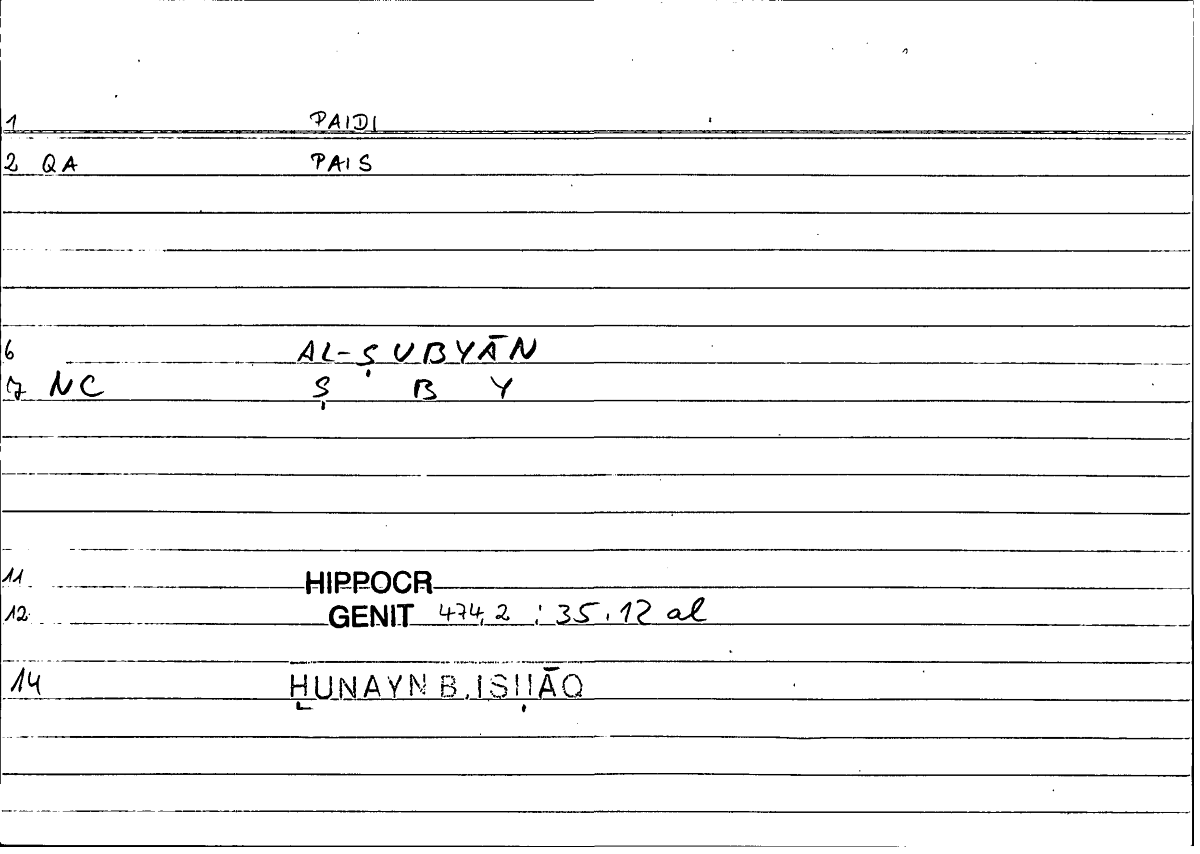 1 PAIDI
2 QA PAIS
6 AL-ṢUBYĀN
7 NC Ṣ B Y
11 HIPPOCR
12 GENIT 474,2 : 35.12 al
14 ḤUNAYN B. ISḤĀQ